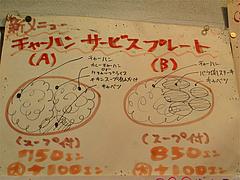 新メニュー
チャーハン サービス プレート
(A)
(B)
チャーハン
チャーハン
キャベツ
キャベツ
(スープ付)
(スープ付)
750エン
850エン
大+100エン
大+100エン